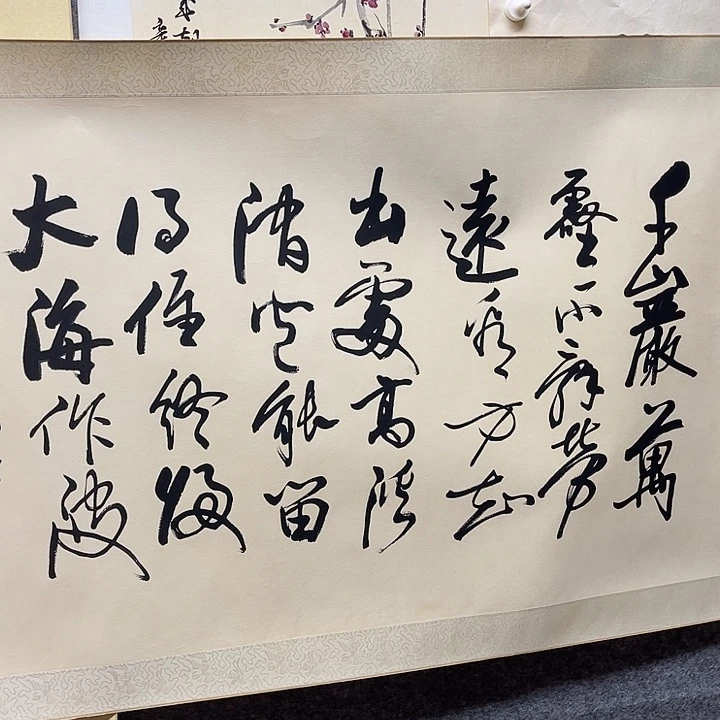 千巖萬
壑不辭勞
遠看方知
出處高溪
澗豈能留
得住終歸
大海作波